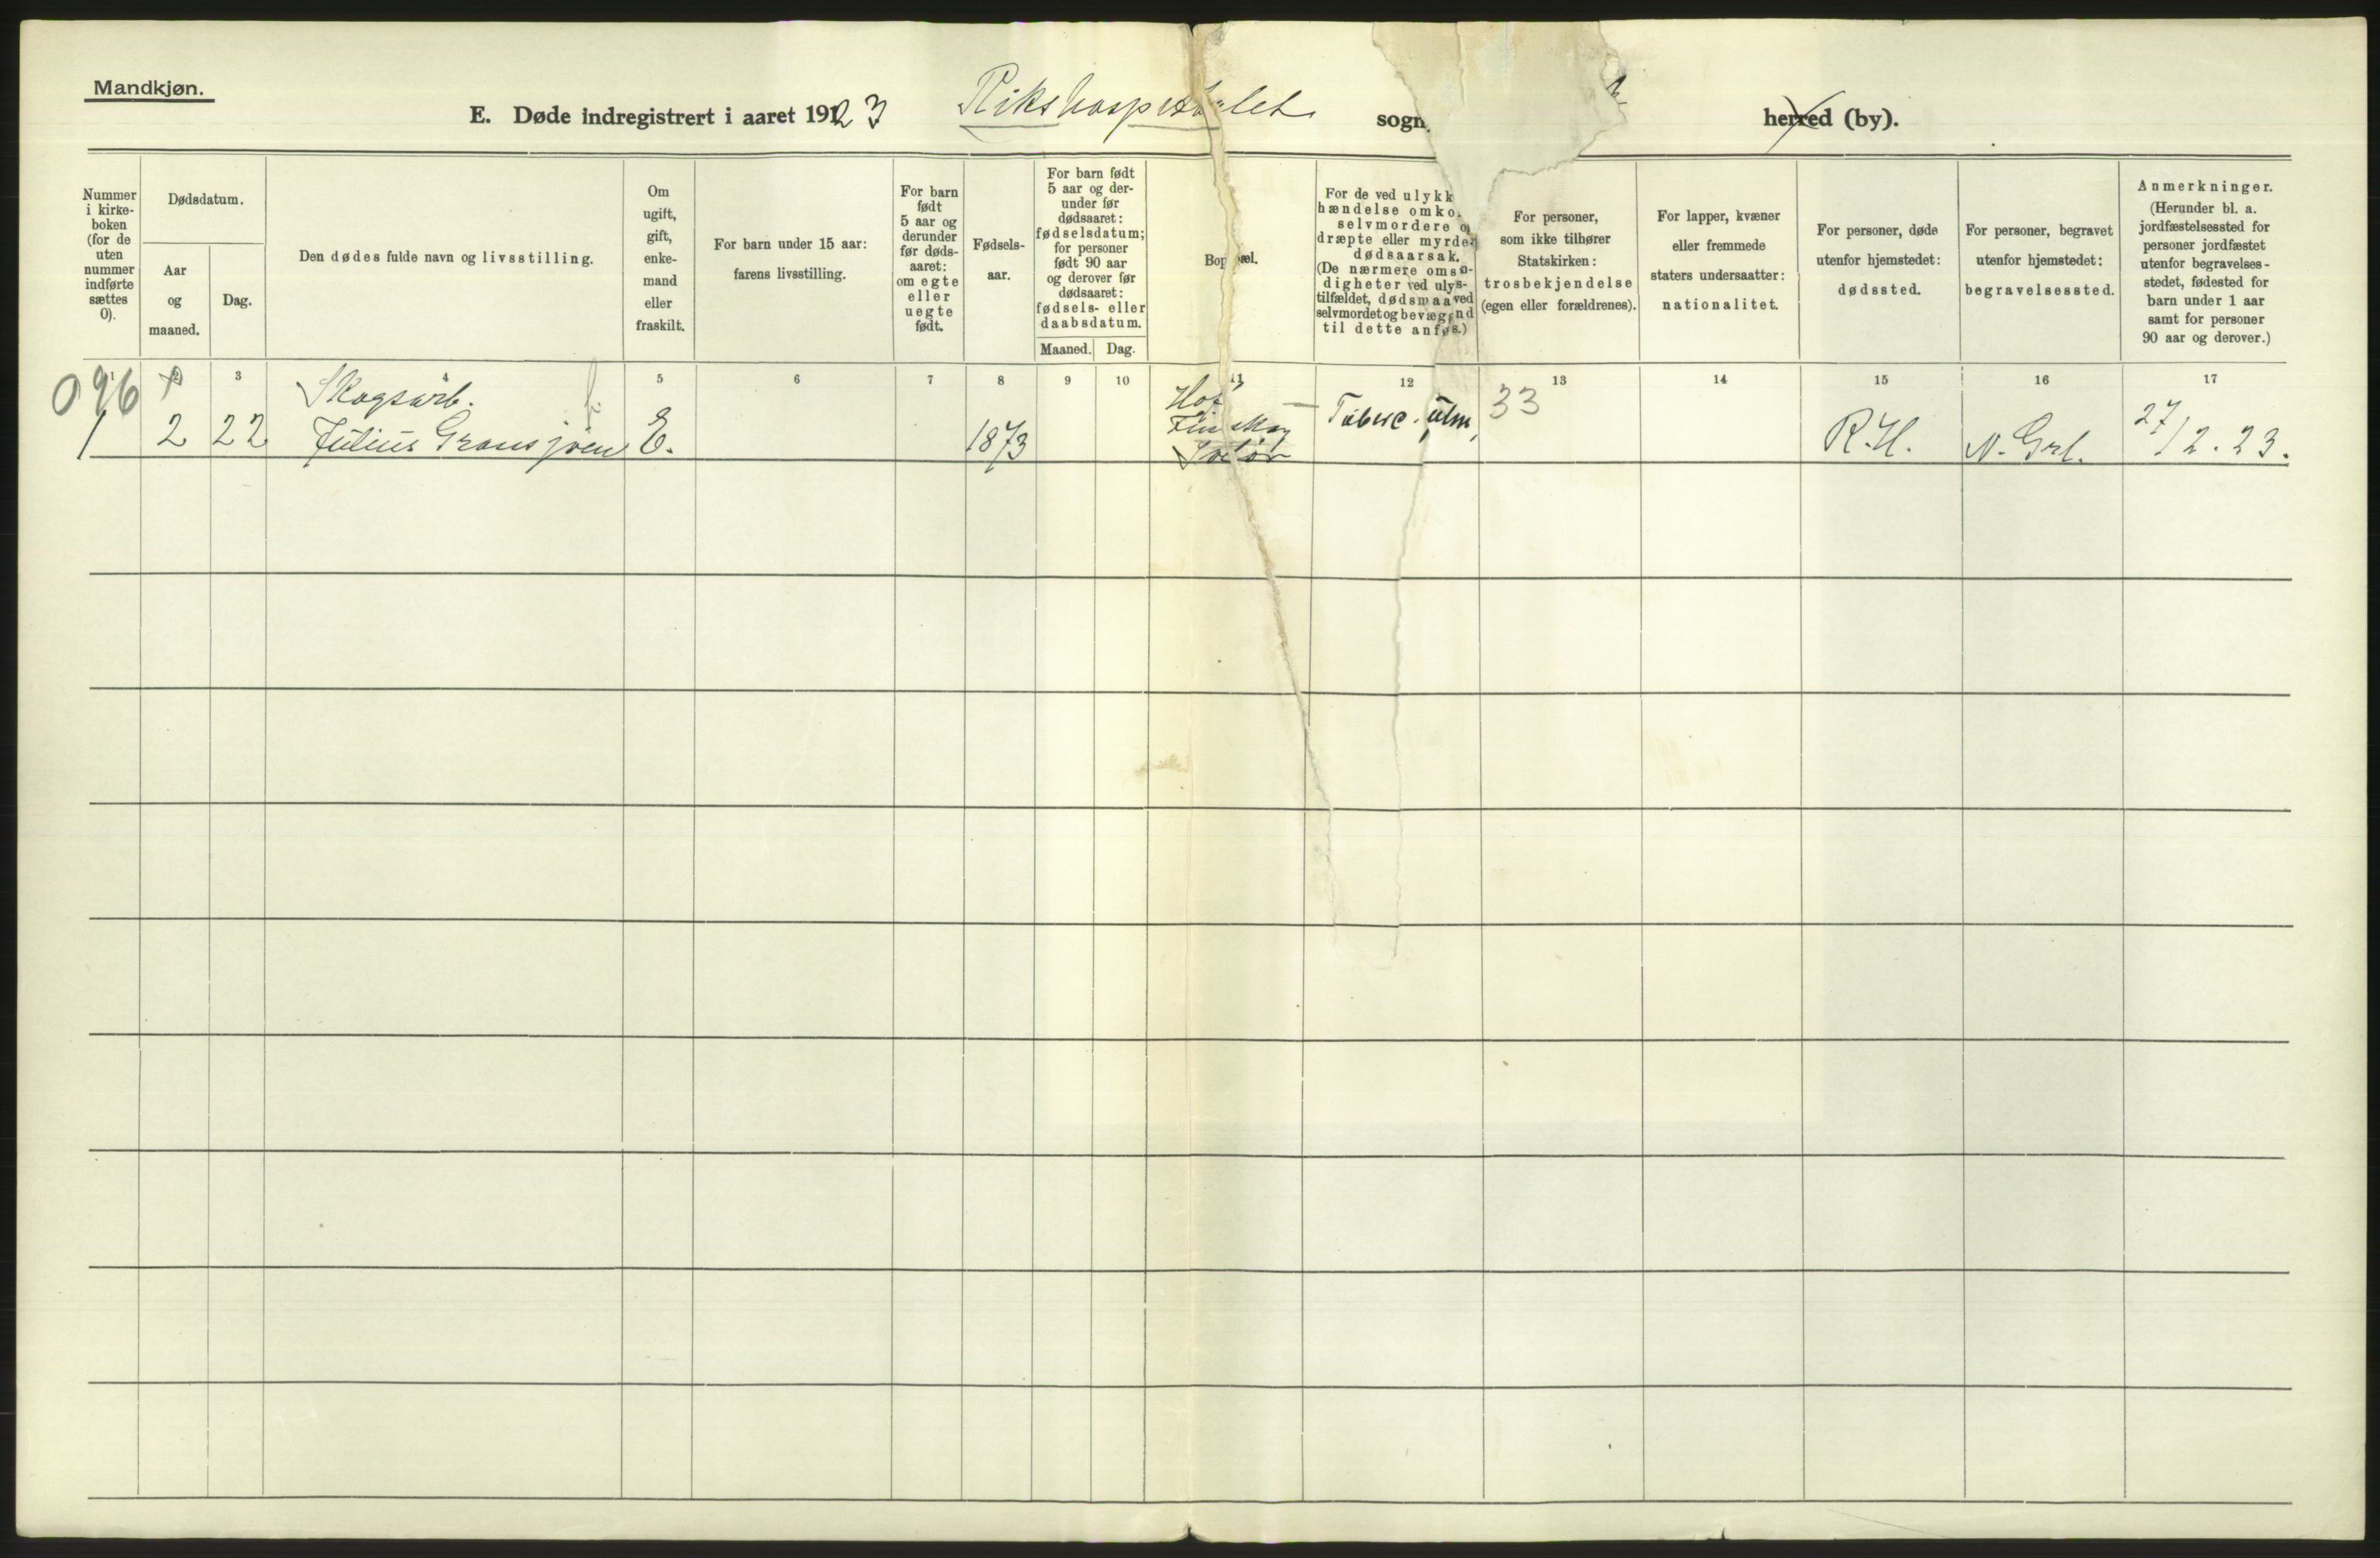 Mandkjøn.
E. Døde indregistrert i aaret 1923 Rikshospitalet sogn, herred (by).
Nummer
i kirke-
boken
(for de
uten
nummer
indførte
sættes
0).
Dødsdatum.
Aar
og
maaned.
Dag.
Den dødes fulde navn og livsstilling.
Om
ugift,
gift,
enke-
mand
eller
fraskilt.
For barn under 15 aar:
farens livsstilling.
For barn
født
5 aar og
derunder
før døds-
aaret:
om egte
eller
uegte
født.
Fødsels-
aar.
For barn født
5 aar og der-
under før
dødsaaret:
fødselsdatum;
for personer
født 90 aar
og derover før
dødsaaret:
fødsels- eller
daabsdatum.
Maaned. Dag.
Bopæl.
For de ved ulykk
hændelse omko
selvmordere o
dræpte eller myrde
dødsaarsak.
(De nærmere oms
digheter ved ulys-
tilfældet, dødsmaa ved
selvmordet og bevæg nd
til dette anføs.)
For personer,
som ikke tilhører
Statskirken:
trosbekjendelse
(egen eller forældrenes).
For lapper, kvæner
eller fremmede
staters undersaatter:
nationalitet.
For personer, døde
utenfor hjemstedet:
dødssted.
For personer, begravet
utenfor hjemstedet:
begravelsessted.
Anmerkninger.
(Herunder bl. a.
jordfæstelsessted for
personer jordfæstet
utenfor begravelses-
stedet, fødested for
barn under 1 aar
samt for personer
90 aar og derover.)
1 2 3 4 5 6 7 8 9 10 11 12 13 14 15 16 17
096 Skogsarb. Hof 33
1 2 22 Julius Gransjøen E. 1873 Solør Tuberc. ulm, R.H. N. Grl. 27/2.23.